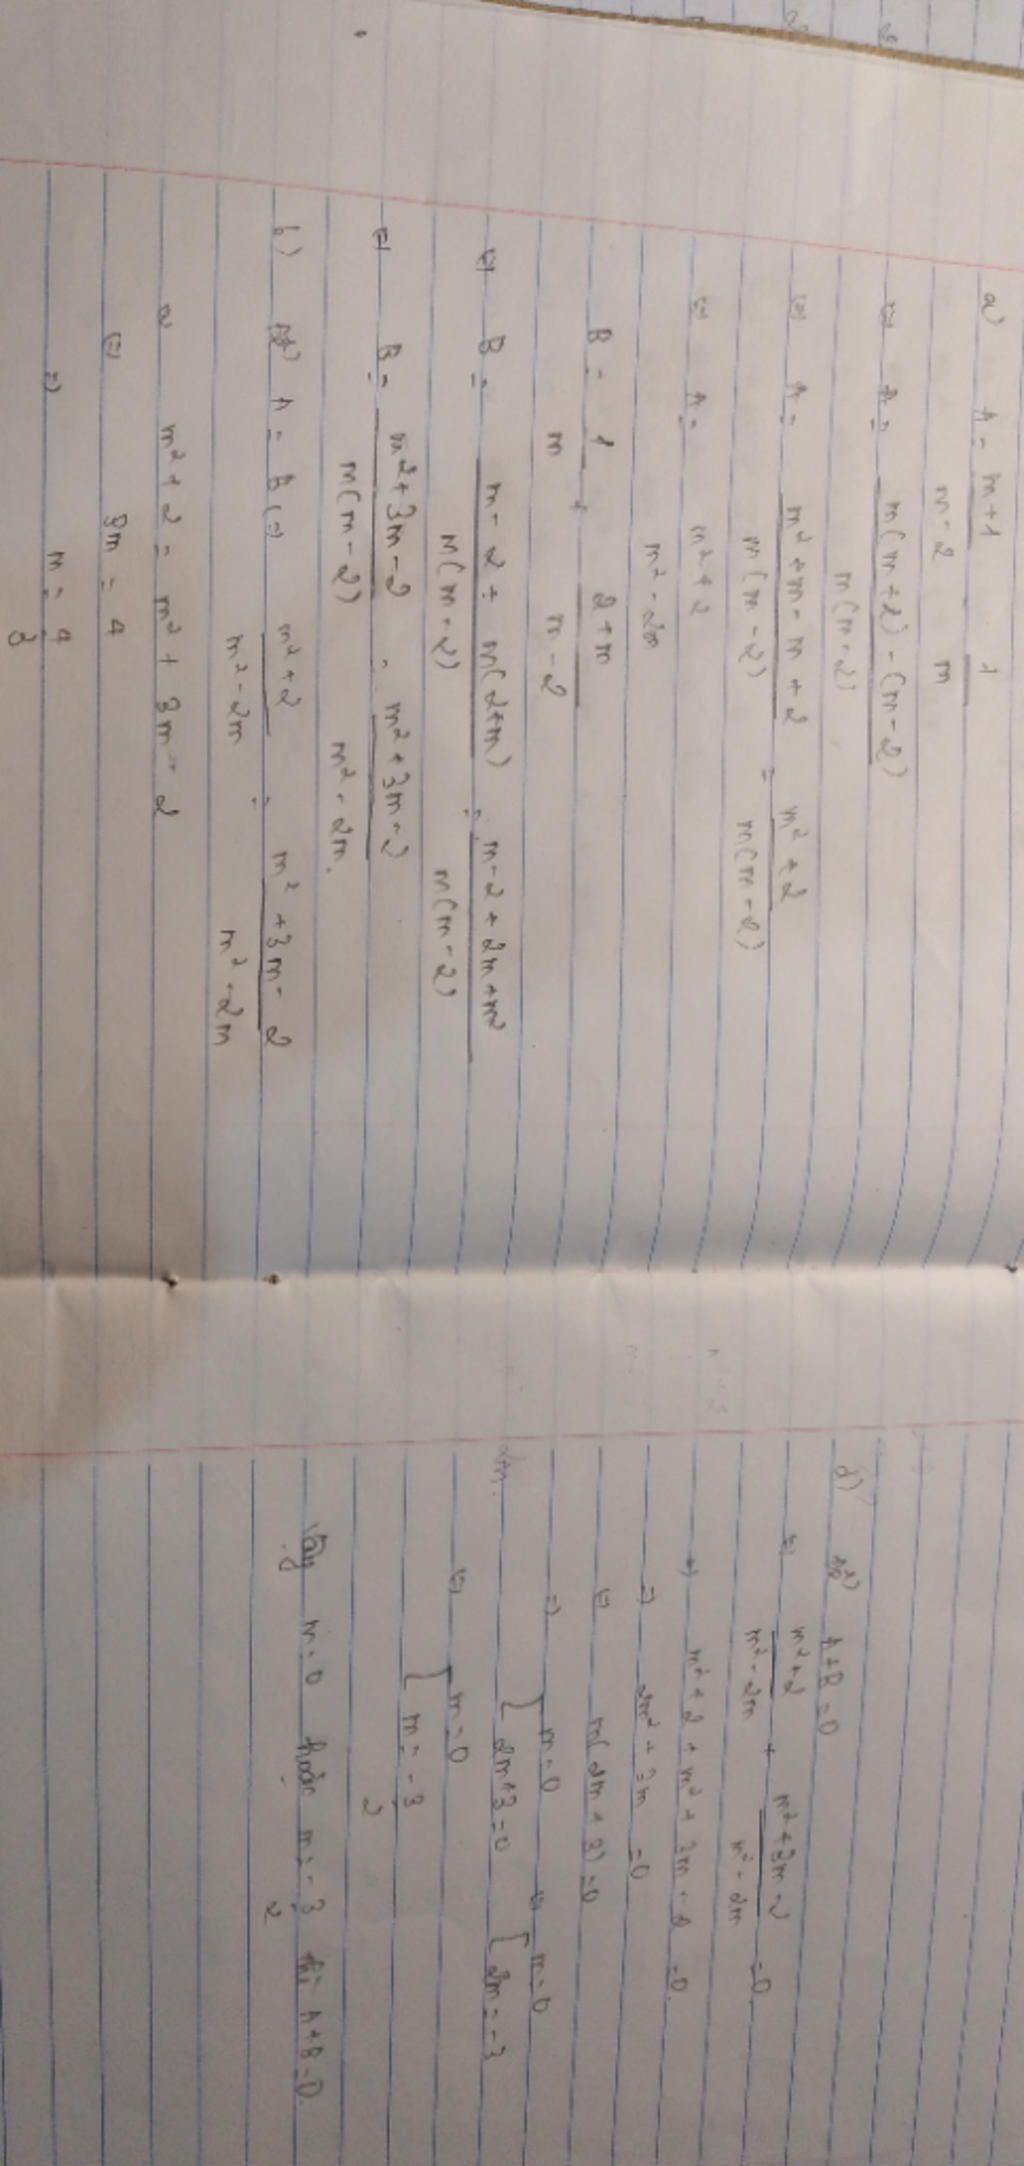 a) A = m+1 / m-2 - 1 / m
(=) A = m(m+1) - (m-2) / m(m-2)
(=) A = m² + m - m + 2 / m(m-2) = m² + 2 / m(m-2)
(=) A = m² + 2 / m² - 2m
B = 1 / m + 2+m / m-2
(=) B = m-2 + m(2+m) / m(m-2) = m-2 + 2m + m² / m(m-2)
(=) B = m² + 3m - 2 / m(m-2) = m² + 3m - 2 / m² - 2m.
b) Để A = B (=) m² + 2 / m² - 2m = m² + 3m - 2 / m² - 2m
m² + 2 = m² + 3m - 2
(=) 3m = 4
=) m = 4 / 3
d) Để A+B = 0
(=) m² + 2 / m² - 2m + m² + 3m - 2 / m² - 2m = 0
m² + 2 + m² + 3m - 2 = 0.
=) 2m² + 3m = 0
(=) m(2m + 3) = 0
=) [ m = 0 (=) [ m = 0
2m+3 = 0 2m = -3
(=) [ m = 0
m = -3 / 2
Vậy m = 0 hoặc m = -3 / 2 thì A+B = 0.